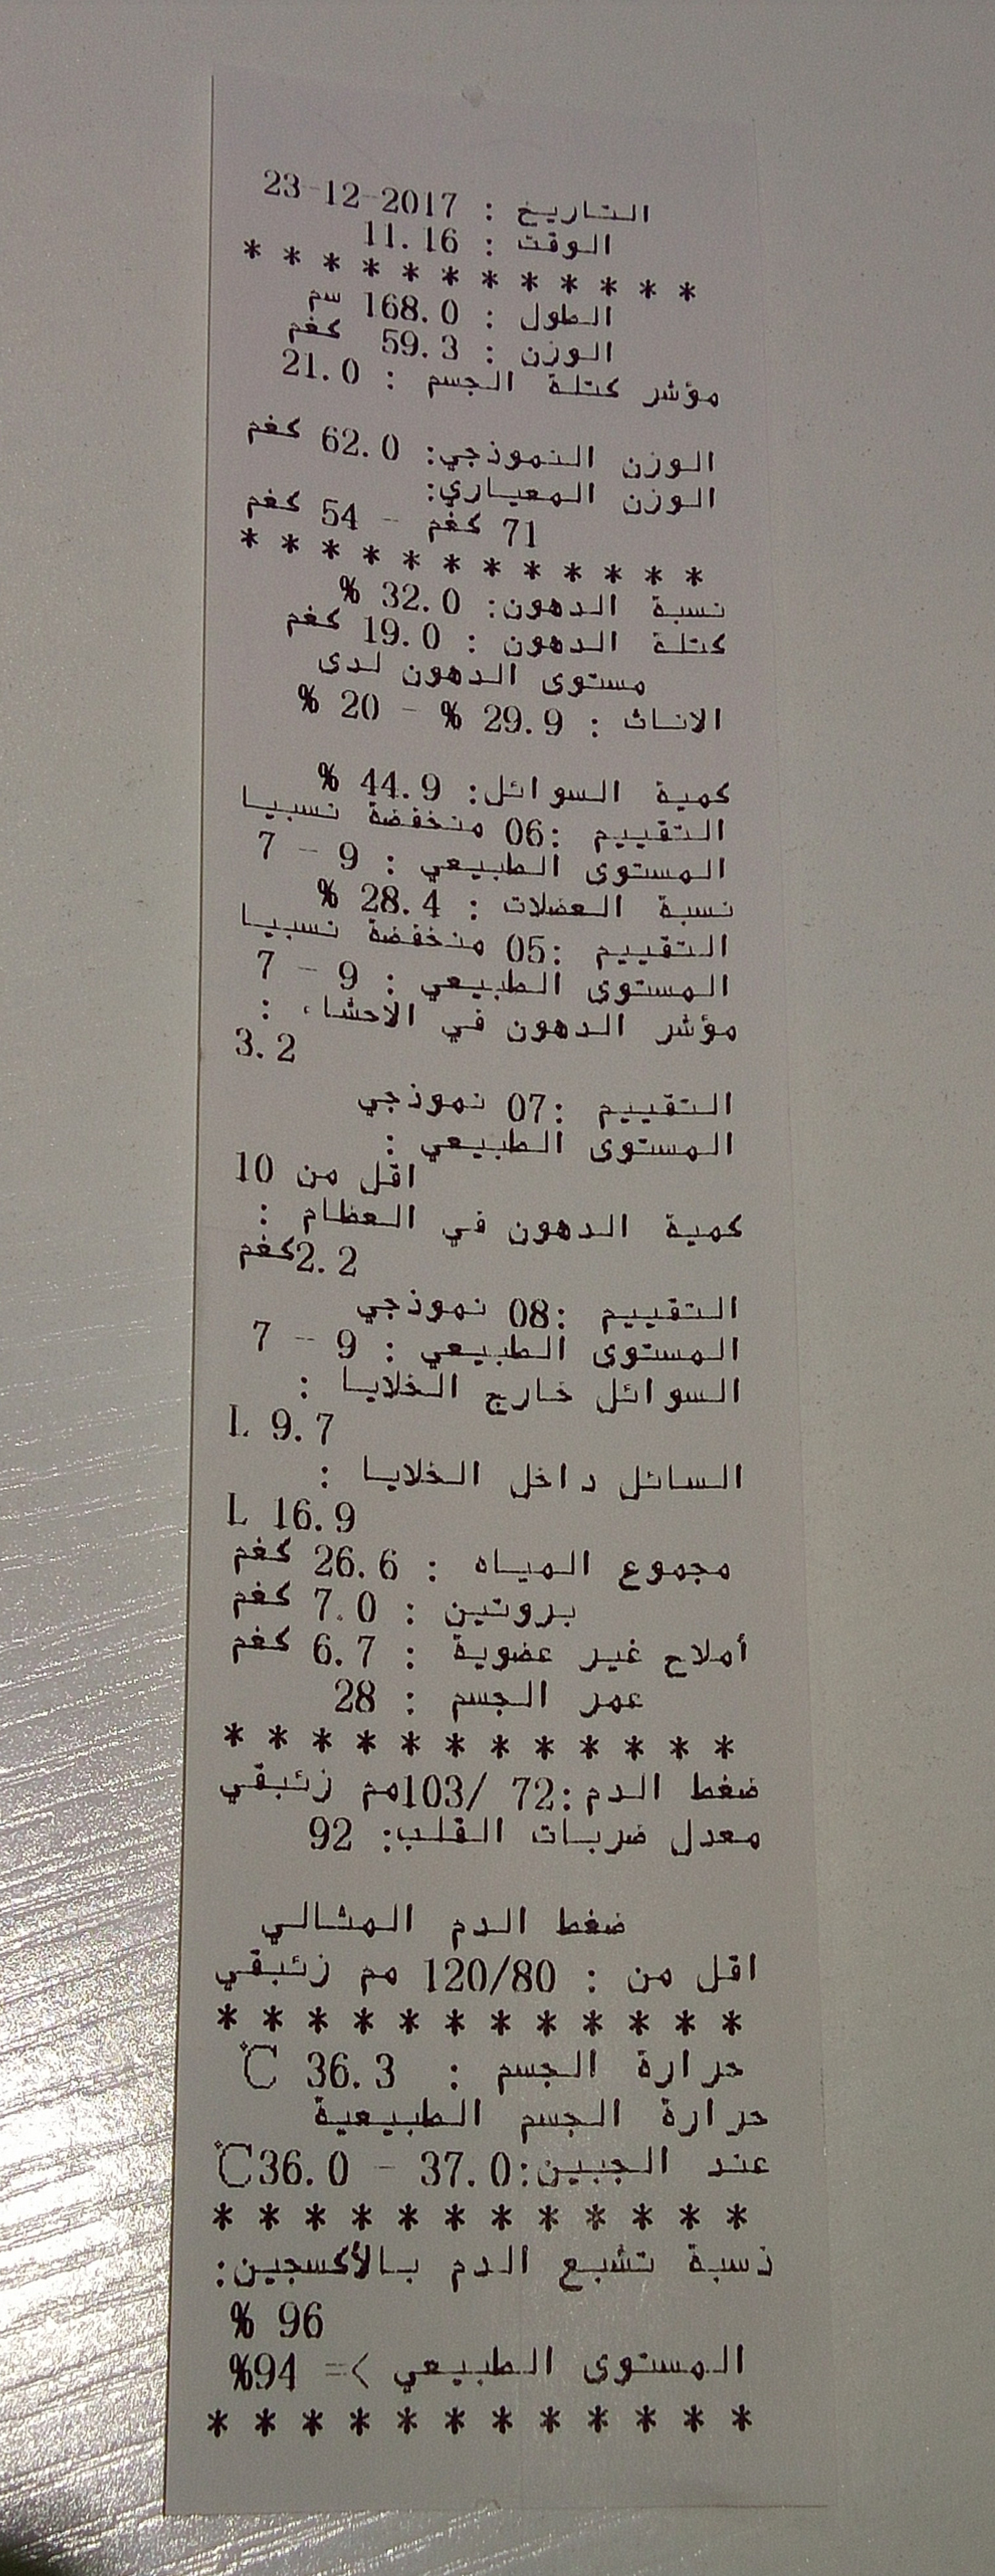 التاريخ : 2017-12-23
الوقت : 11.16
* * * * * * * * * * * *
الطول : 168.0 سم
الوزن : 59.3 كغم
مؤشر كتلة الجسم : 21.0
الوزن النموذجي: 62.0 كغم
الوزن المعياري:
71 كغم - 54 كغم
* * * * * * * * * * * *
نسبة الدهون: 32.0 %
كتلة الدهون : 19.0 كغم
مستوى الدهون لدى
الاناث : 29.9 % - 20 %
كمية السوائل: 44.9 %
التقييم :06 منخفضة نسبيا
المستوى الطبيعي : 9 - 7
نسبة العضلات : 28.4 %
التقييم :05 منخفضة نسبيا
المستوى الطبيعي : 9 - 7
مؤشر الدهون في الأحشاء :
3.2
التقييم :07 نموذجي
المستوى الطبيعي :
اقل من 10
كمية الدهون في العظام :
2.2كغم
التقييم :08 نموذجي
المستوى الطبيعي : 9 - 7
السوائل خارج الخلايا :
L 9.7
السائل داخل الخلايا :
L 16.9
مجموع المياه : 26.6 كغم
بروتين : 7.0 كغم
أملاح غير عضوية : 6.7 كغم
عمر الجسم : 28
* * * * * * * * * * * *
ضغط الدم :72 /103مم زئبقي
معدل ضربات القلب: 92
ضغط الدم المثالي
اقل من : 120/80 مم زئبقي
* * * * * * * * * * * *
حرارة الجسم : 36.3 ℃
حرارة الجسم الطبيعية
عند الجبين:37.0 - 36.0℃
* * * * * * * * * * * *
نسبة تشبع الدم بالأكسجين:
% 96
المستوى الطبيعي >= 94%
* * * * * * * * * * * *